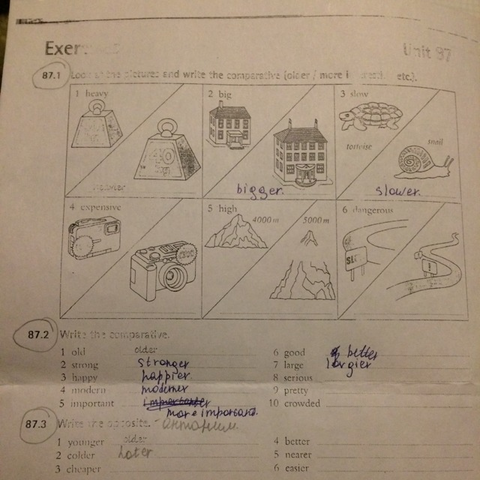 Exer
Unit 87
87.1 Look at the pictures and write the comparative (older / more etc.).
1 heavy
2 big
3 slow
tortoise
snail
bigger
slower
4 expensive
5 high
4000 m
5000 m
6 dangerous
87.2 Write the comparative.
1 old older
2 strong stronger
3 happy happier
4 modern moderner
5 important
more important
6 good better
7 large largier
8 serious
9 pretty
10 crowded
87.3 Write the opposite.
1 younger older
2 colder hoter
3 cheaper
4 better
5 nearer
6 easier